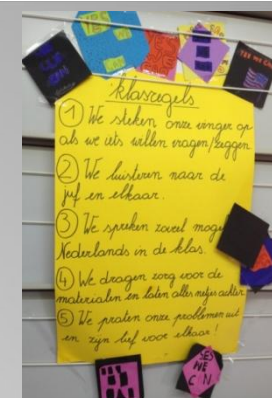 YES WE CAN
klasregels
1 We steken onze vinger op
als we iets willen vragen/zeggen.
2 We luisteren naar de
juf en elkaar.
3 We spreken zoveel moge
Nederlands in de klas.
4 We dragen zorg voor de
materialen en laten alles netjes achter
5 We praten onze problemen uit
en zijn lief voor elkaar!
YES
WE
CAN